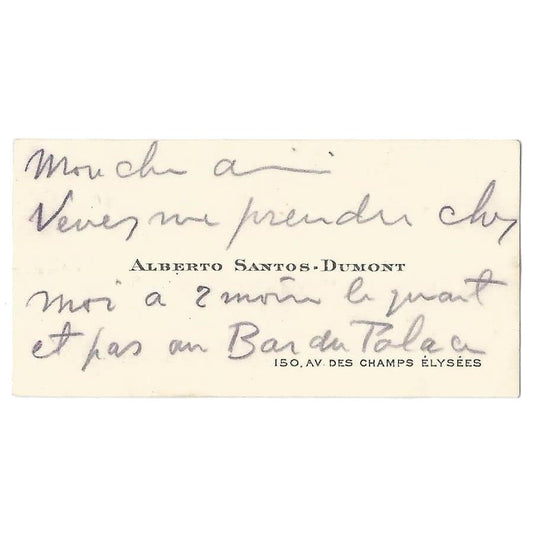 Mon cher ami
Venez me prendre chez
ALBERTO SANTOS-DUMONT
moi a 2 moins le quart
et pas au Bar du Palace
150, AV. DES CHAMPS ÉLYSÉES